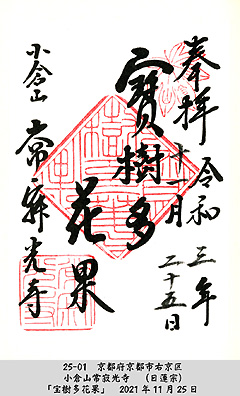 奉拝 令和三年
十一月二十五日
寶樹多花果
小倉山
常寂光寺
25-01 京都府京都市右京区
小倉山常寂光寺 (日蓮宗)
「宝樹多花果」 2021年11月25日